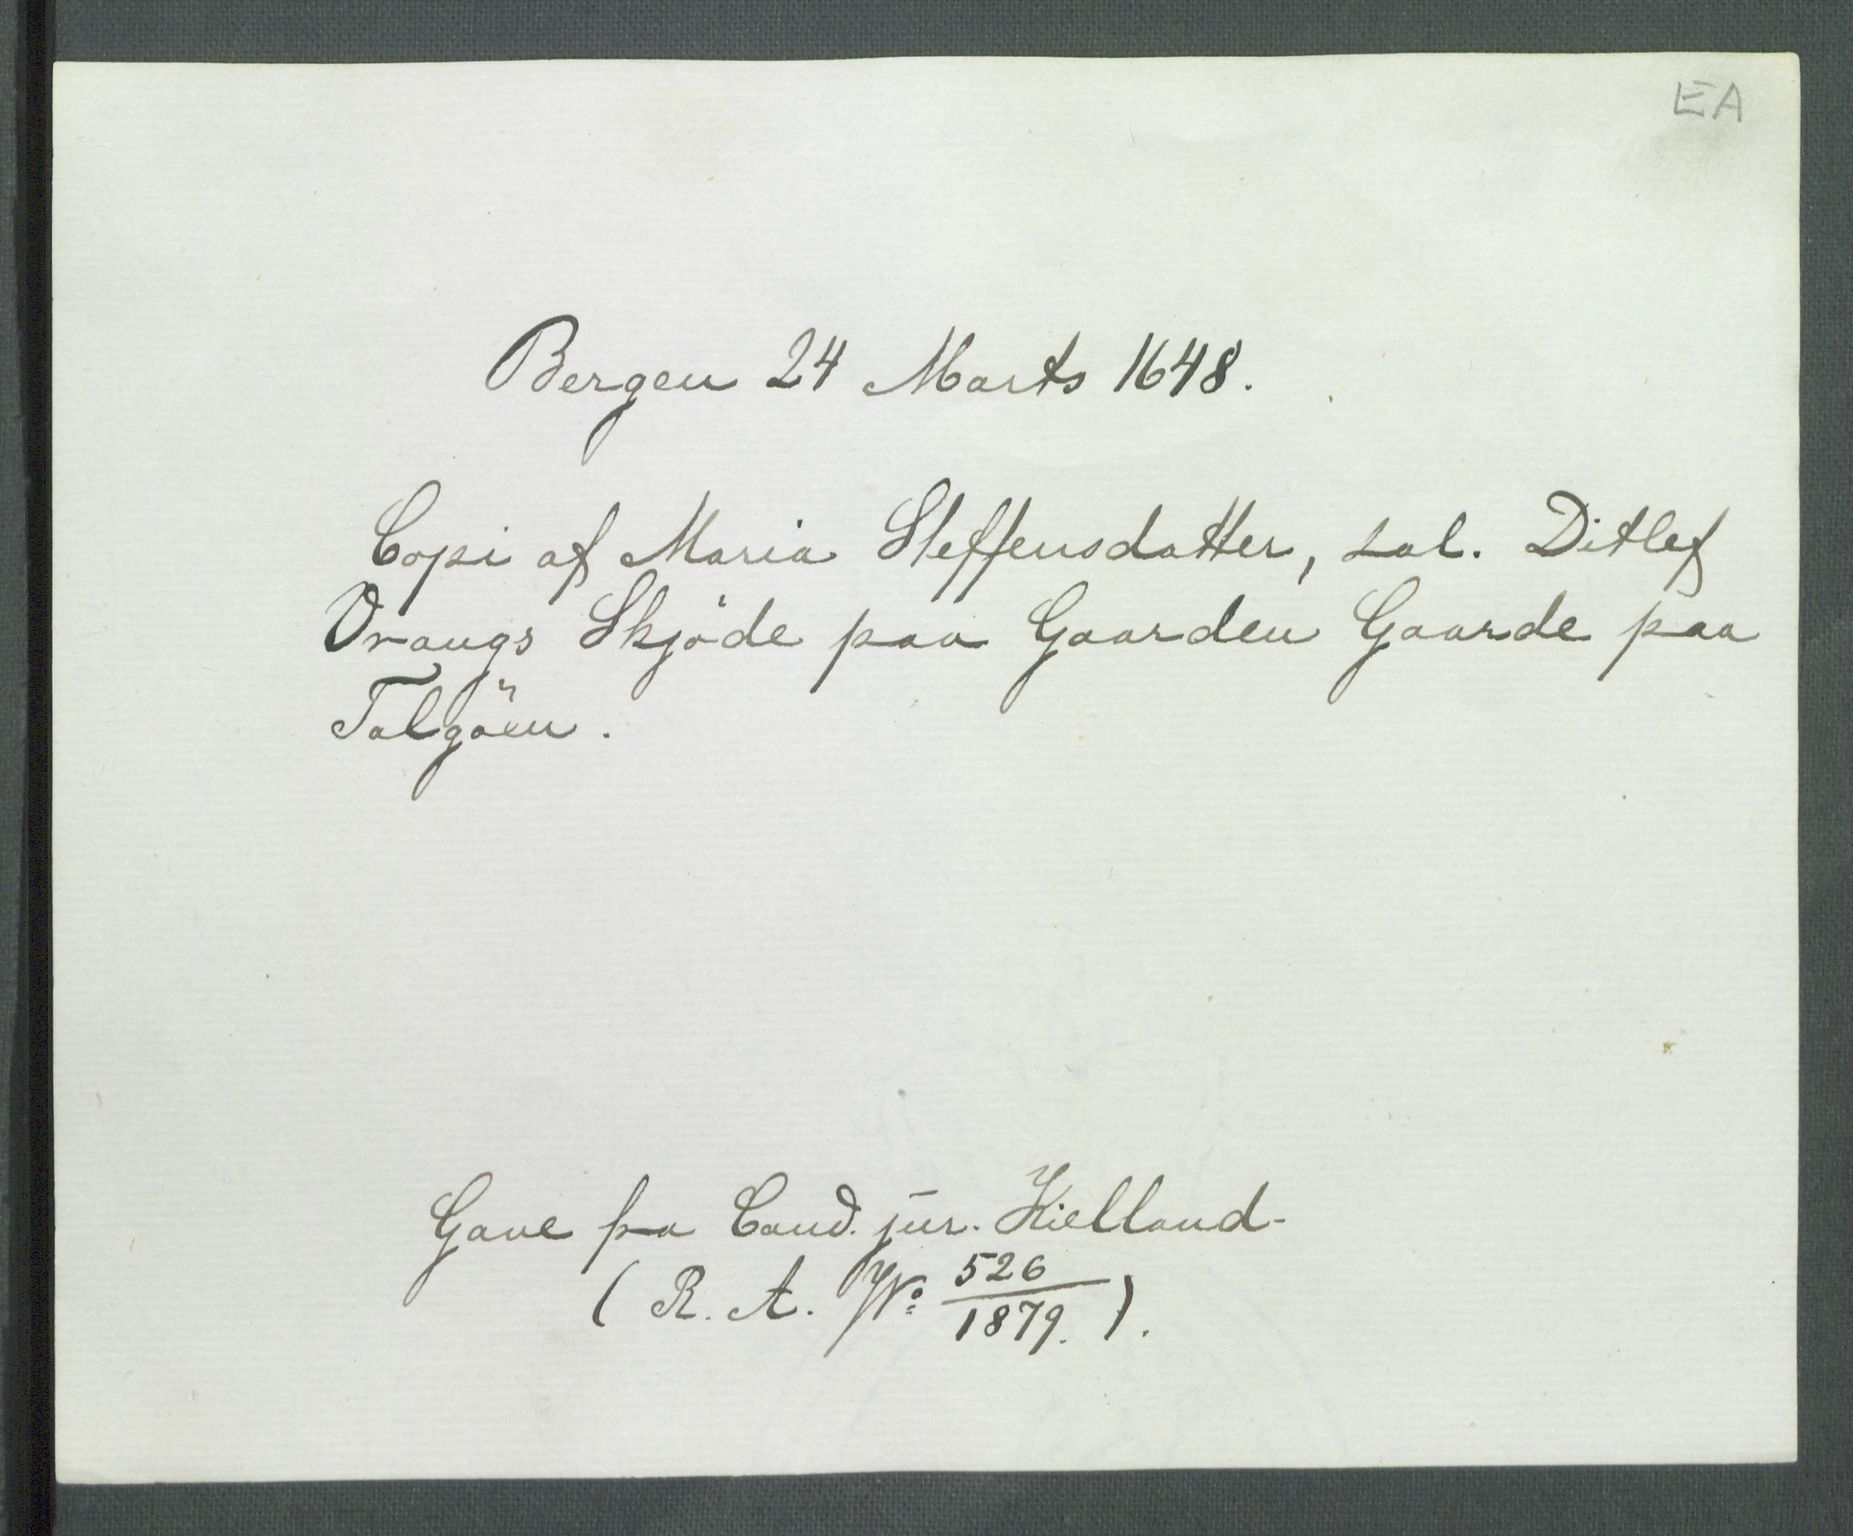 EA
Bergen 24 Marts 1648.
Copi af Maria Steffensdatter, sal. Ditlef
Vrangs Skjöde paa Gaarden Gaarde paa
Talgöen.
Gave fra Cand. jur. Kielland-
(R. A. No 526/1879.).